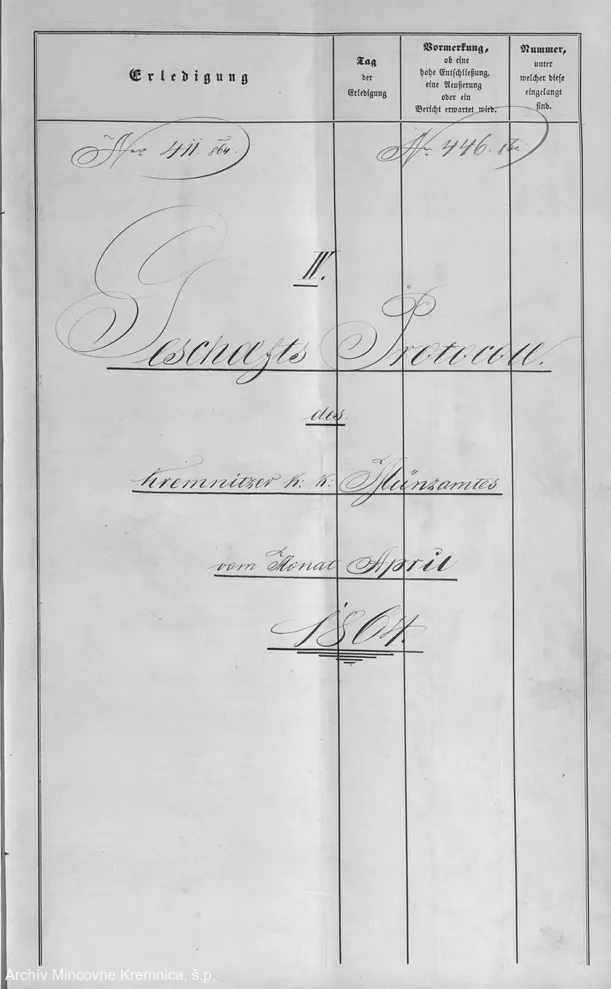 Erledigung
Tag
der
Erledigung
Vormerkung,
ob eine
hohe Entschließung,
eine Aeußerung
oder ein
Bericht erwartet wird.
Nummer,
unter
welcher diese
eingelangt
sind.
Nro 411. 864.
Nr. 446.
IV.
Geschafts Protocoll.
des
Kremnitzer k: k: Münzamtes
vom Monat April
1864.
Archív Mincovne Kremnica, š.p.